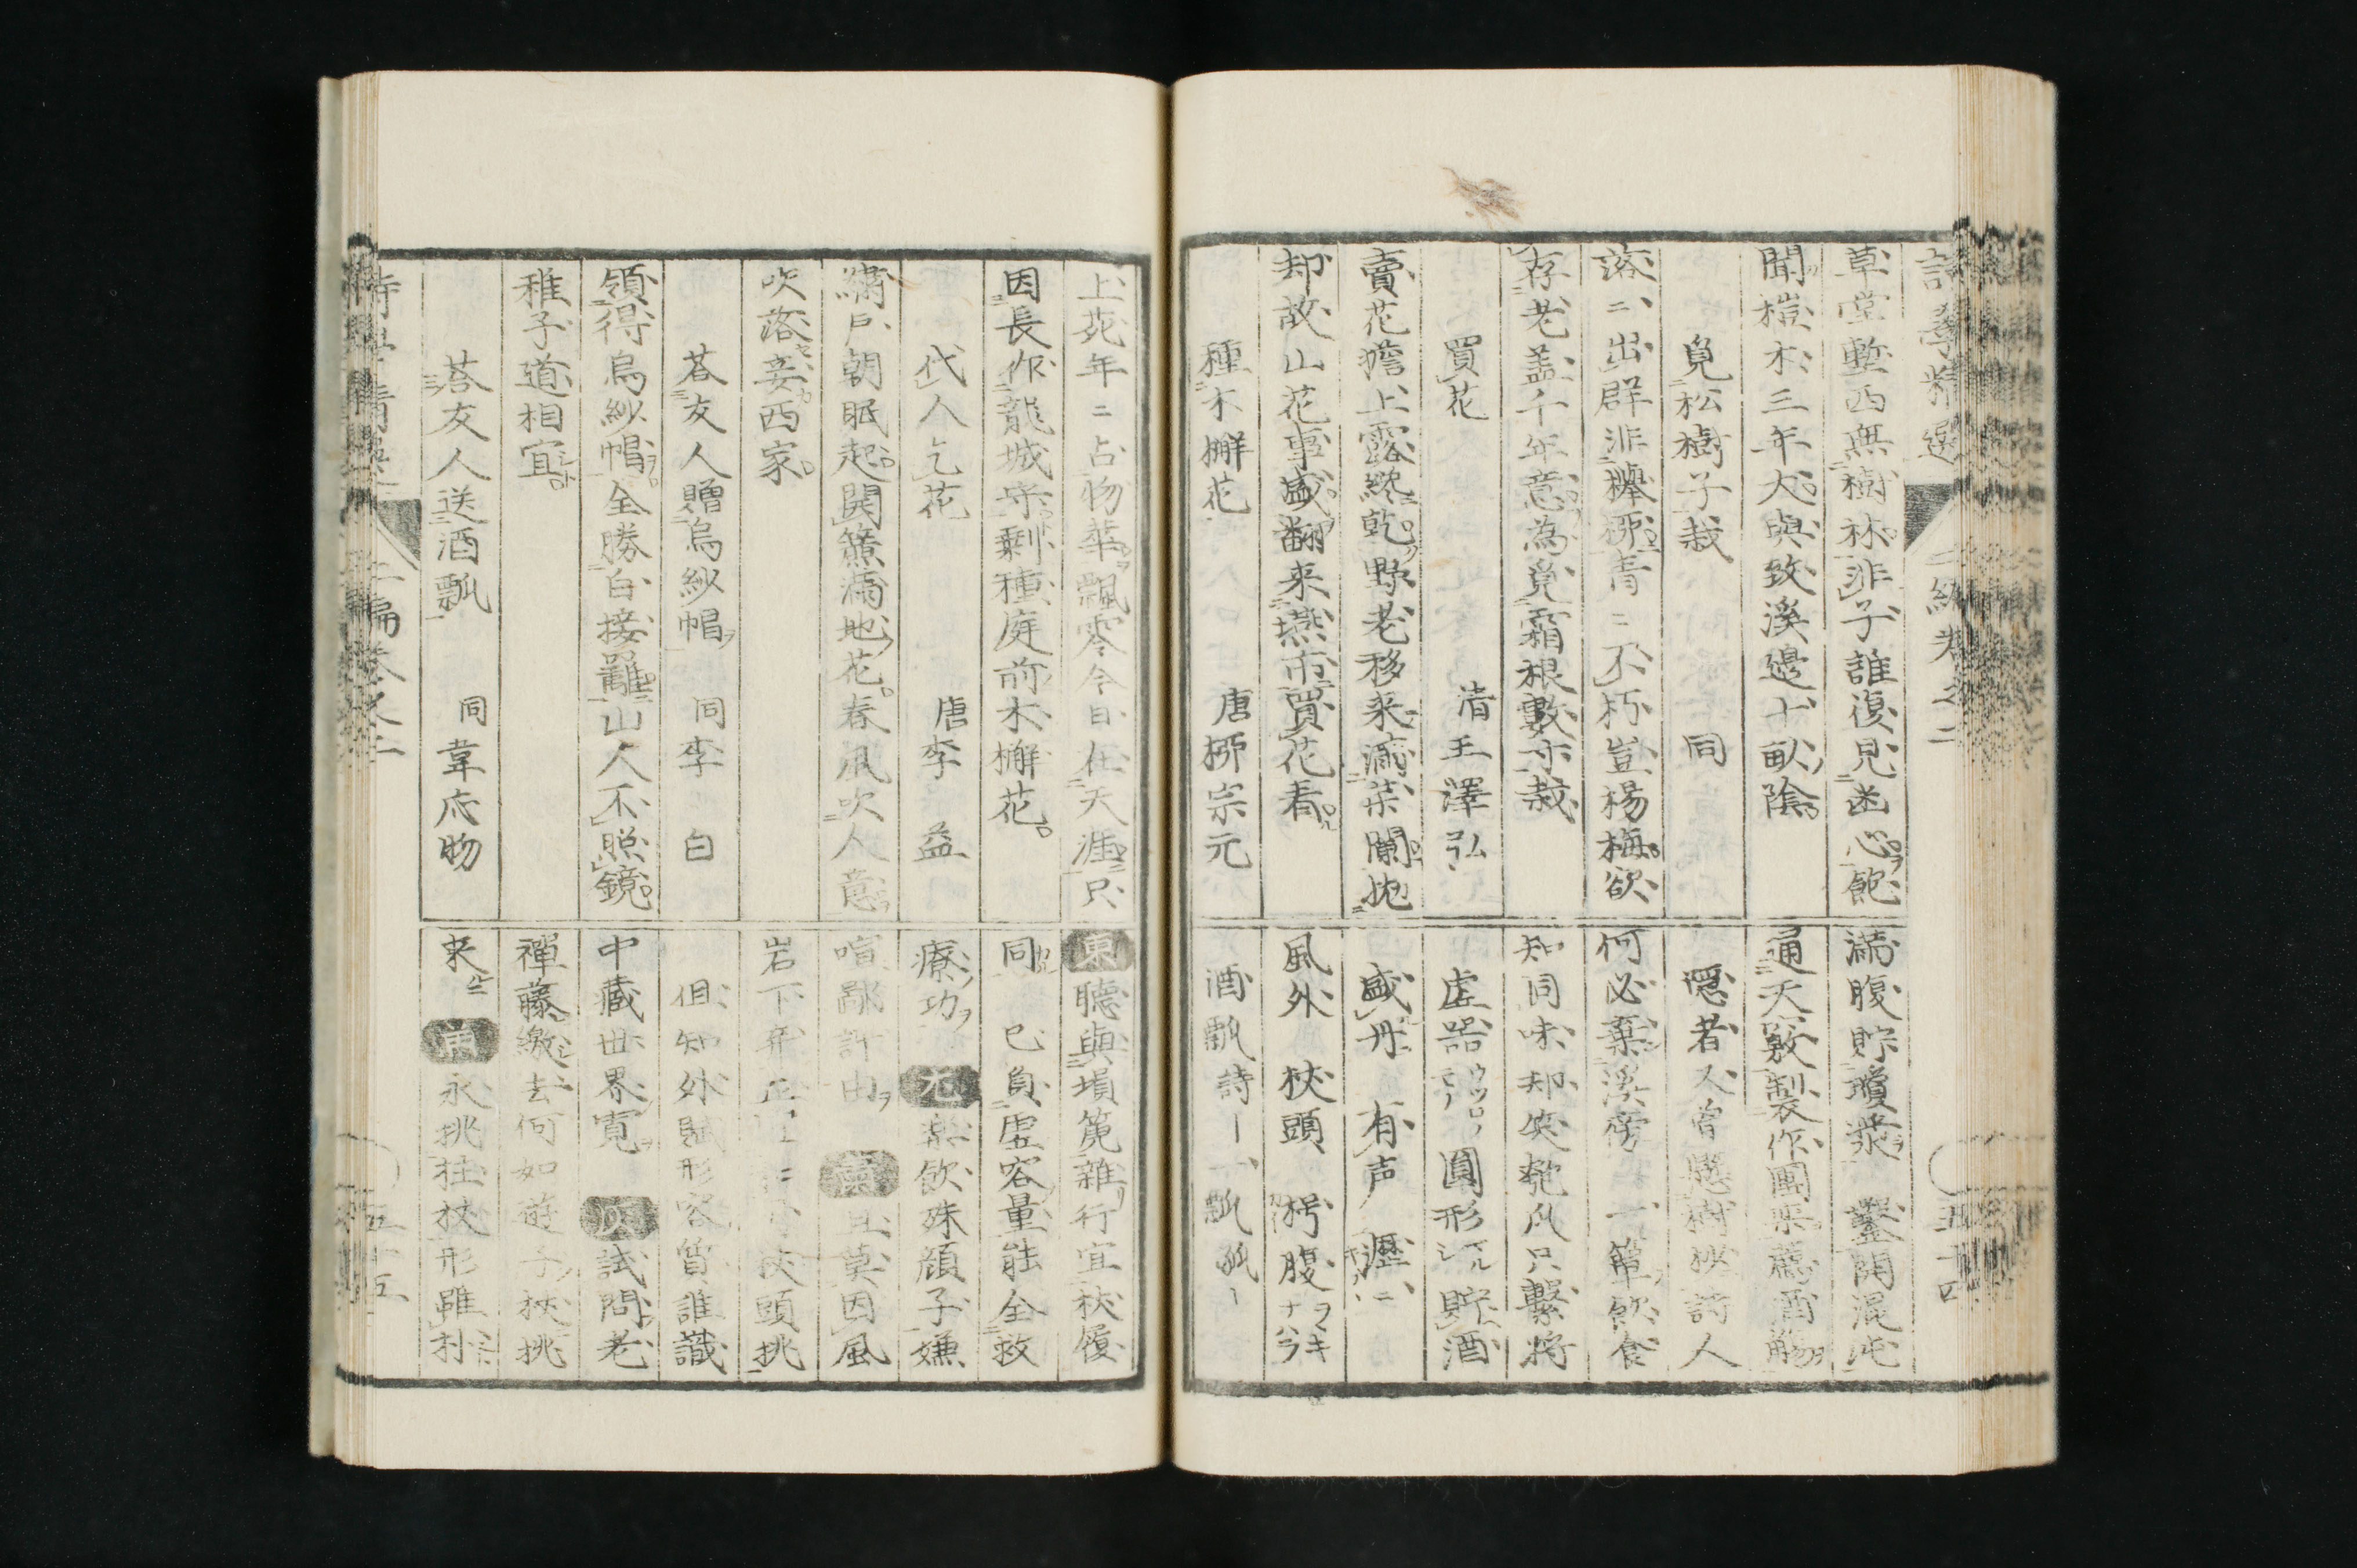 草堂塹西無樹林非子誰復見幽心飽
聞榿木三年大與致溪邊十畝陰
覓松樹子栽　同
落二出群非櫸柳青二不朽豈楊梅欲
存老盖千年意為覓霜根數寸栽
買花　清王澤弘
賣花擔上露纔乾野老移来滿菜闌拋
却故山花事盛翻来燕市買花看
種木槲花　唐柳宗元
滿腹貯瓊漿　鑿開混沌
通天竅製作團
隱者又曾聽樹 詩人
何必棄溪旁　一簞飲食
知同味却笑匏瓜只繫將
虚器　圓形　貯酒
盛丹　有声　瀝二
風外　杖頭　枵腹
酒瓢詩　一瓢
上苑年二占物華飄零今日在天涯只
因長作龍城守剩種庭前木槲花
代人乞花　唐李益
繡戶朝眠起開簾滿地花春風吹人意
吹落妾西家
荅友人贈烏紗帽　同李白
領得烏紗帽全勝白接䍦山人不照鏡
稚子道相宜
荅友人送酒瓢　同韋応物
東聽與塤篪雜行宜杖履
同　已負虚容量能全救
療功　元 飲殊顔子嫌
喧鄙許由　 且莫因風
岩下 杖頭挑
但知外賦形容質誰識
中藏世界寛　試問老
禅藤繳去何如遊子杖挑
来　 永挑拄杖形雖朴